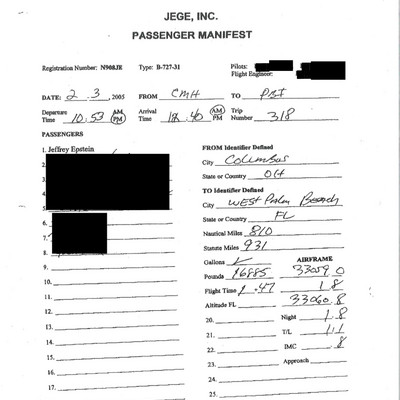 JEGE, INC.
PASSENGER MANIFEST
Registration Number: N908JE Type: B-727-31 Pilots:
Flight Engineer:
DATE: 2 . 3 , 2005 FROM CMH TO PBI
Departure Time 10:53 AM PM Arrival Time 12:40 AM PM Trip Number 318
PASSENGERS
1. Jeffrey Epstein
FROM Identifier Defined
2.
City Columbus
3.
State or Country OH
4.
5.
TO Identifier Defined
6.
City West Palm Beach
7.
State or Country FL
8.
Nautical Miles 810
9.
Statute Miles 931
10.
Gallons AIRFRAME
11.
Pounds 16885 33059 0
12.
Flight Time 1.47 1 8
13.
Altitude FL 33060 8
14.
20. Night 1.8
15.
21. T/L 1/1
16.
22. IMC .8
23. Approach
17.
24.
25.